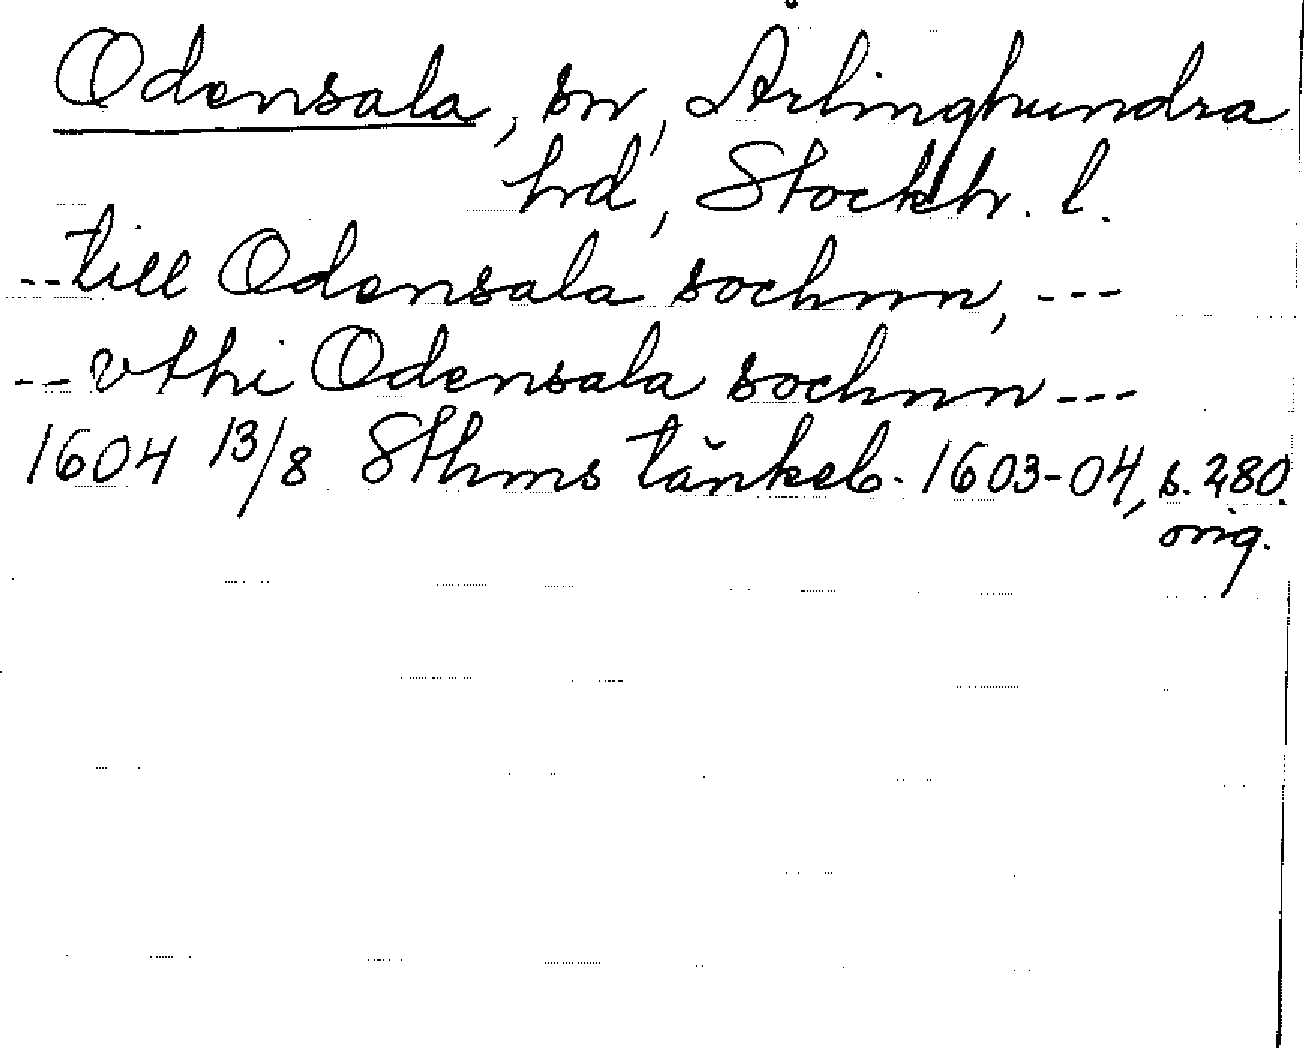 Odensala, sn, Ärlinghundra
hd, Stockh. l.
--till Odensala sochnn, ---
--vthi Odensala sochnn---
1604 13/8 Sthms tänkeb. 1603-04, s. 280.
orig.